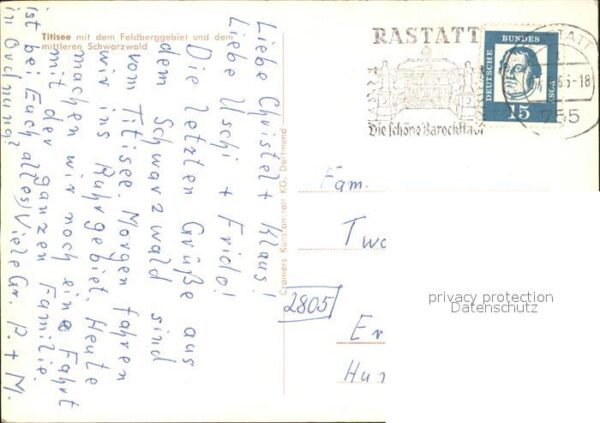 Titisee mit dem Feldberggebiet und dem
mittleren Schwarzwald
Liebe Christel + Klaus!
Liebe Uschi + Frido!
Die letzten Grüße aus
dem Schwarzwald sind
vom Titisee. Morgen fahren
wir ins Ruhrgebiet. Heute
machen wir noch eine Fahrt
mit der ganzen Familie.
ist bei Euch alles
in Ordnung? Viele Gr. P. + M.
Cramers Kunstanstalt KG, Dortmund
RASTATT
Die schöne Barockstadt
DEUTSCHE BUNDES
15
6 5 - 18
755
Fam.
Two
2805
En
Hun
privacy protection
Datenschutz